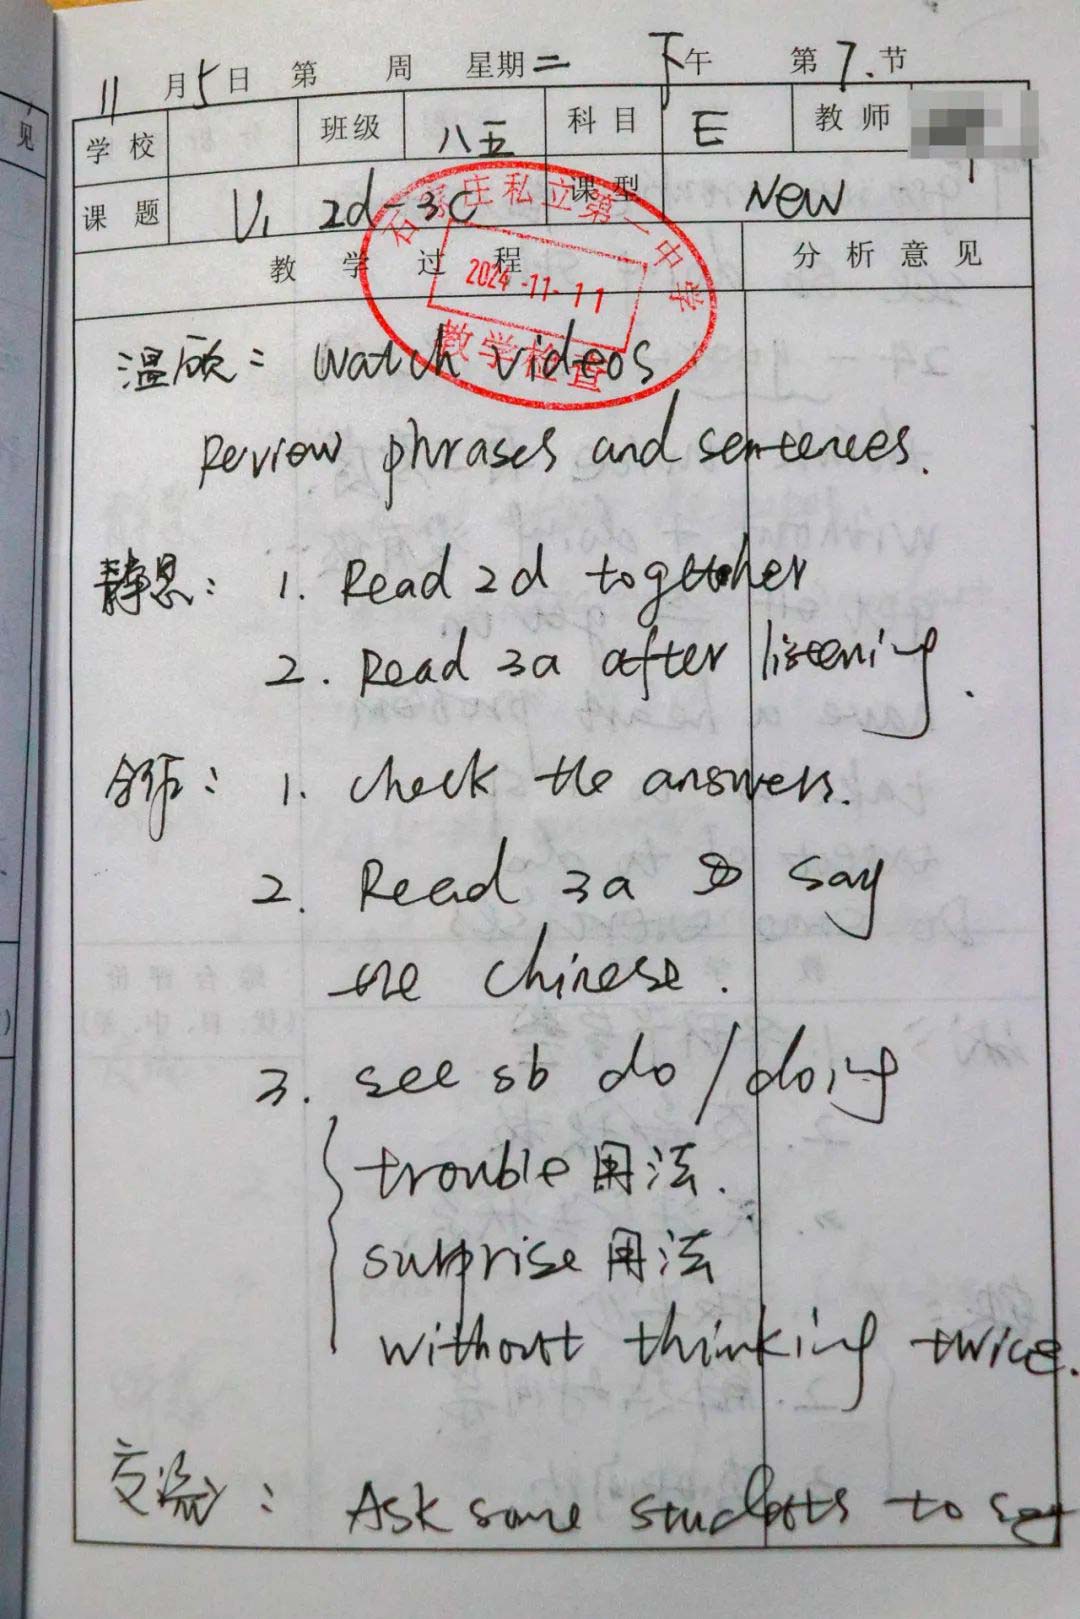 11月5日 第 周 星期二 下午 第7.节
学校 班级 八五 科目 E 教师
课题 U1 2d-3c 课型 New
教学过程 分析意见
石家庄私立第一中学
2024-11-11
教学检查
温欣: watch videos
Review phrases and sentences.
静思: 1. Read 2d together
2. Read 3a after listening.
合作: 1. check the answers.
2. Read 3a & say
the Chinese.
3. see sb do/doing
trouble用法.
surprise用法
without thinking twice.
交流: Ask some students to say